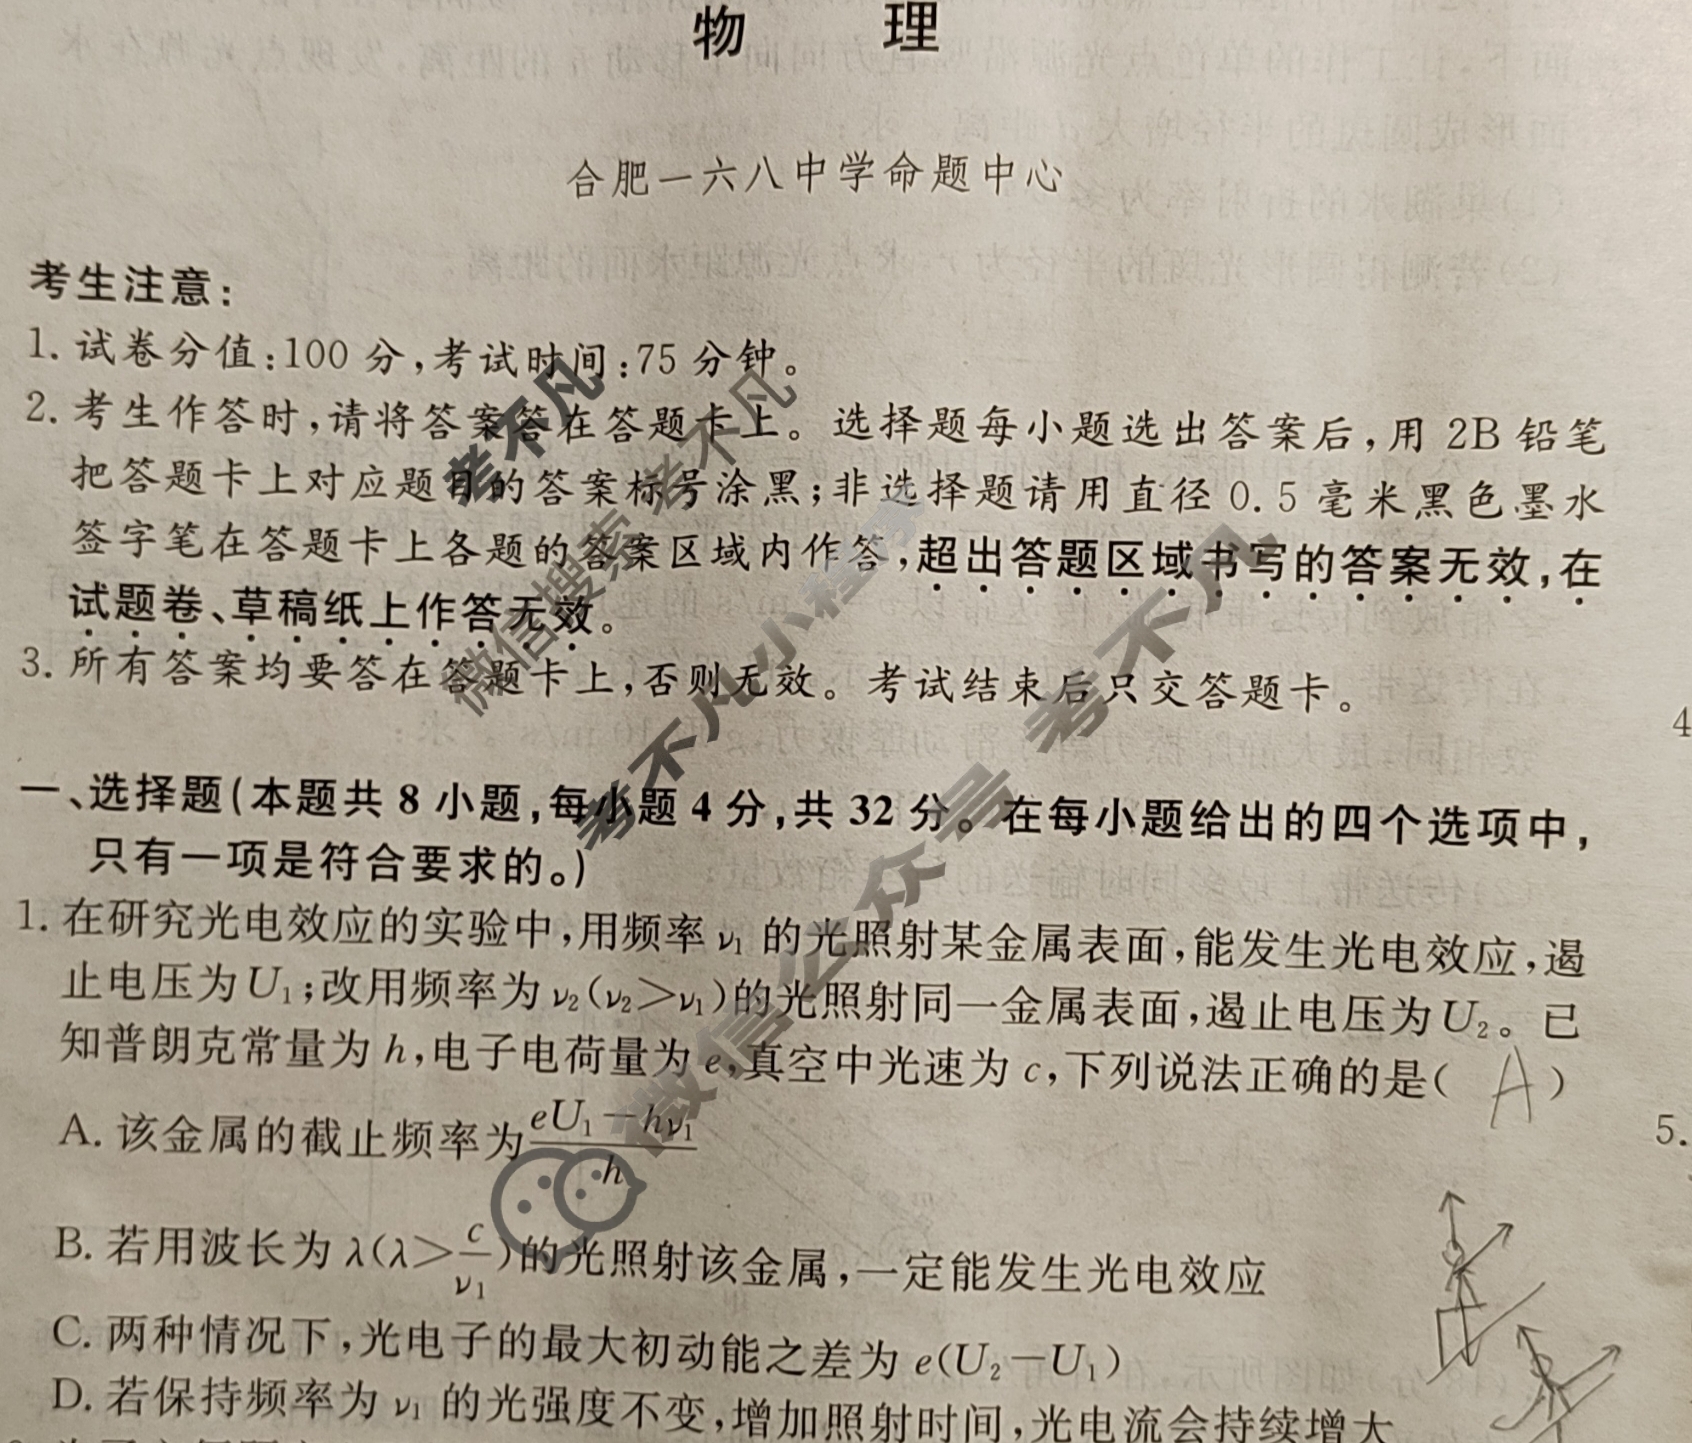 物 理
合肥一六八中学命题中心
考生注意:
1. 试卷分值:100 分,考试时间:75 分钟。
2. 考生作答时,请将答案答在答题卡上。选择题每小题选出答案后,用 2B 铅笔
把答题卡上对应题目的答案标号涂黑;非选择题请用直径 0.5 毫米黑色墨水
签字笔在答题卡上各题的答案区域内作答,超出答题区域书写的答案无效,在
试题卷、草稿纸上作答无效。
3. 所有答案均要答在答题卡上,否则无效。考试结束后只交答题卡。
4
一、选择题(本题共 8 小题,每小题 4 分,共 32 分。在每小题给出的四个选项中,
只有一项是符合要求的。)
1. 在研究光电效应的实验中,用频率 ν₁ 的光照射某金属表面,能发生光电效应,遏
止电压为 U₁;改用频率为 ν₂(ν₂>ν₁)的光照射同一金属表面,遏止电压为 U₂。已
知普朗克常量为 h,电子电荷量为 e,真空中光速为 c,下列说法正确的是( A )
A. 该金属的截止频率为 (eU₁-hν₁)/h
5.
B. 若用波长为 λ(λ>c/ν₁)的光照射该金属,一定能发生光电效应
C. 两种情况下,光电子的最大初动能之差为 e(U₂-U₁)
D. 若保持频率为 ν₁ 的光强度不变,增加照射时间,光电流会持续增大
考不凡
微信搜索 考不凡
考不凡小程序
微信公众号 考不凡